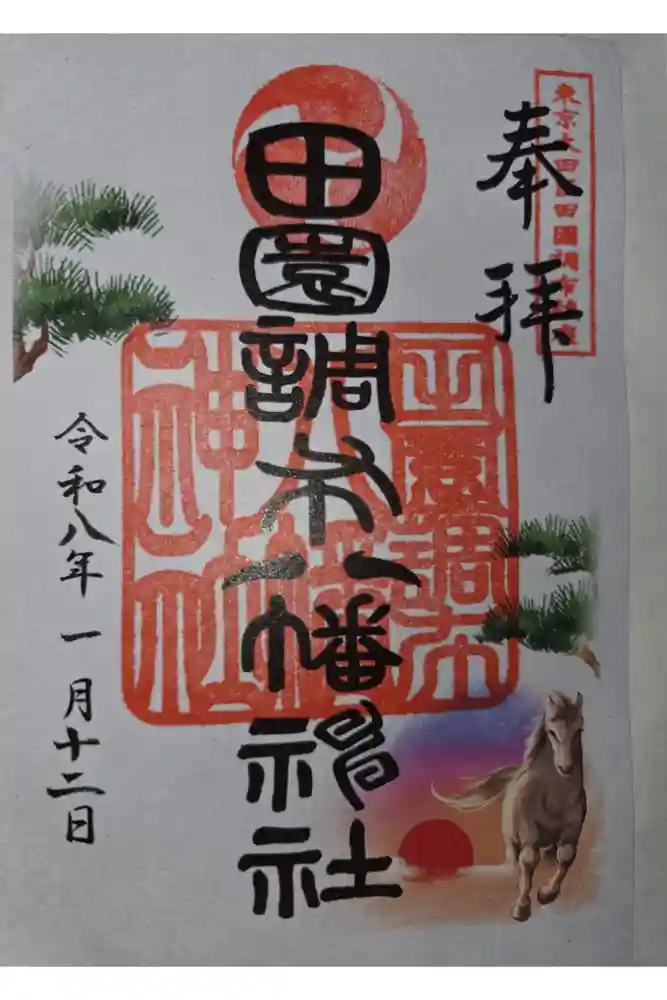 奉拝
東京大田区田園調布鎮座
田園調布八幡神社
田園調布
八幡
神社
令和八年一月十二日